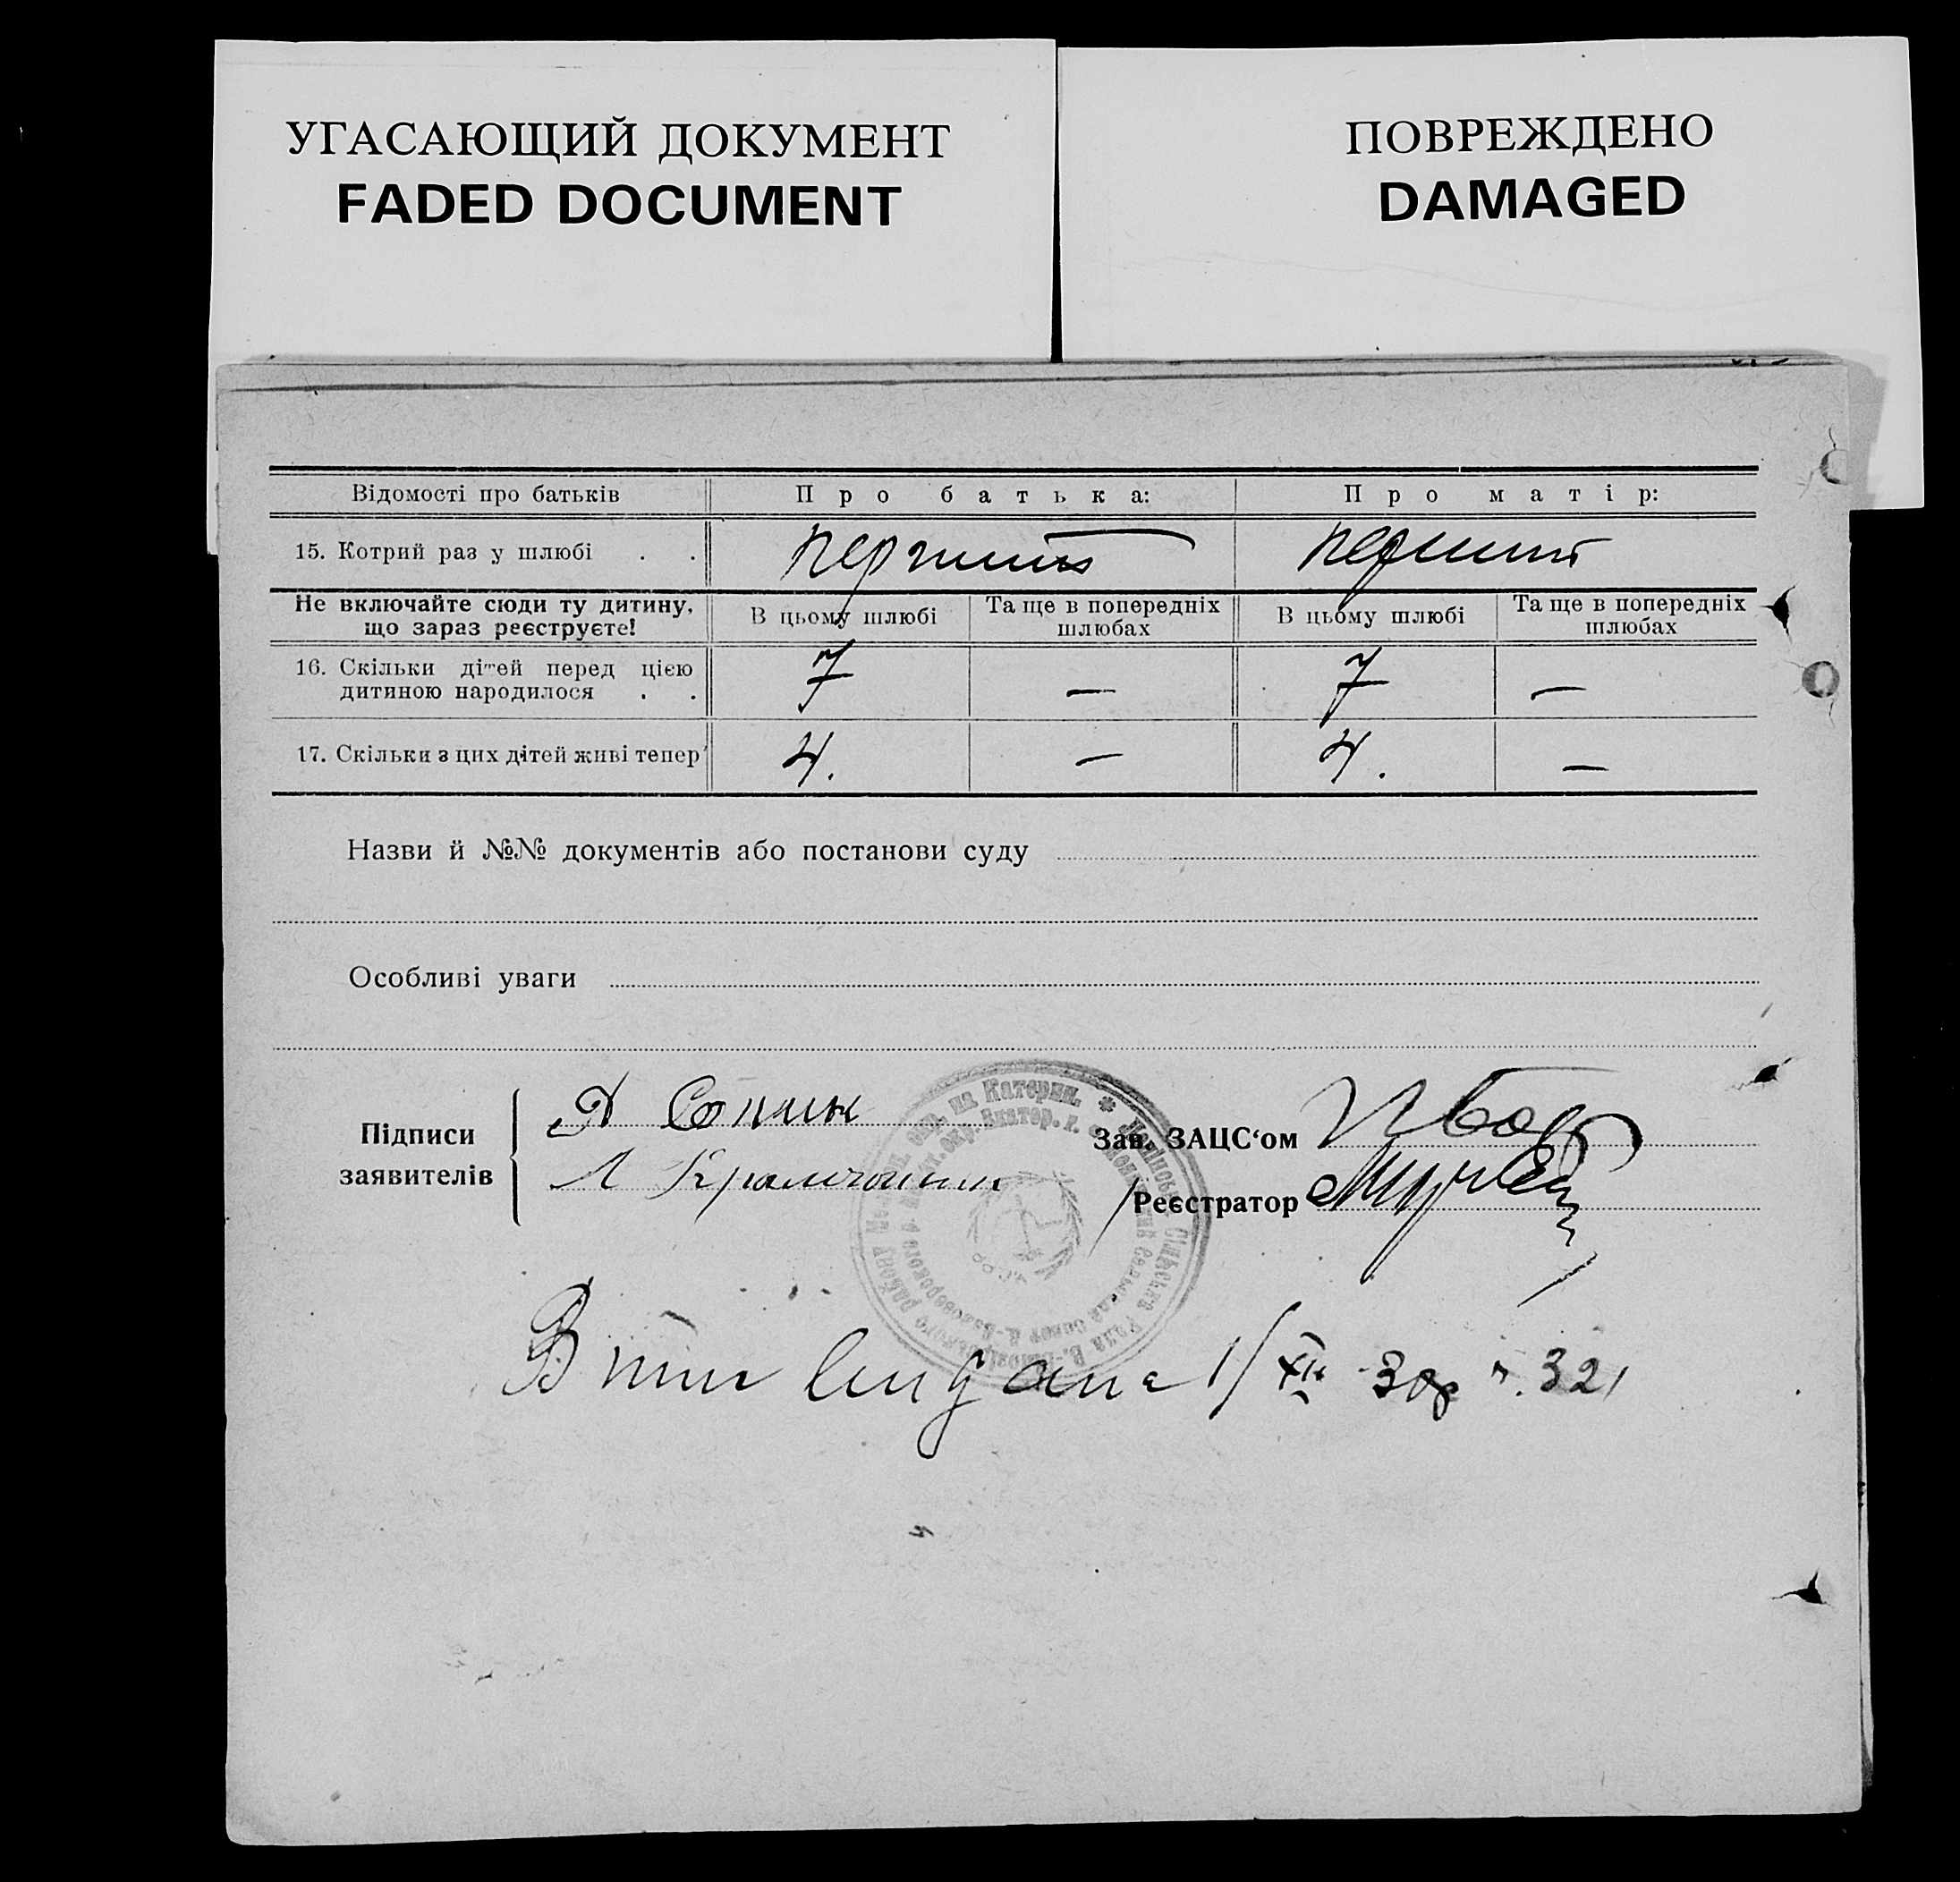 УГАСАЮЩИЙ ДОКУМЕНТ
FADED DOCUMENT
ПОВРЕЖДЕНО
DAMAGED
Відомості про батьків Про батька: Про матір:
15. Котрий раз у шлюбі . . перший перший
Не включайте сюди ту дитину, що зараз реєструєте! В цьому шлюбі Та ще в попередніх шлюбах В цьому шлюбі Та ще в попередніх шлюбах
16. Скільки дітей перед цією дитиною народилося . . 7 — 7 —
17. Скільки з цих дітей живі тепер 4. — 4. —
Назви й №№ документів або постанови суду
Особливі уваги
Підписи заявителів
Зав. ЗАЦС‘ом
Реєстратор
1/XII 30р 32